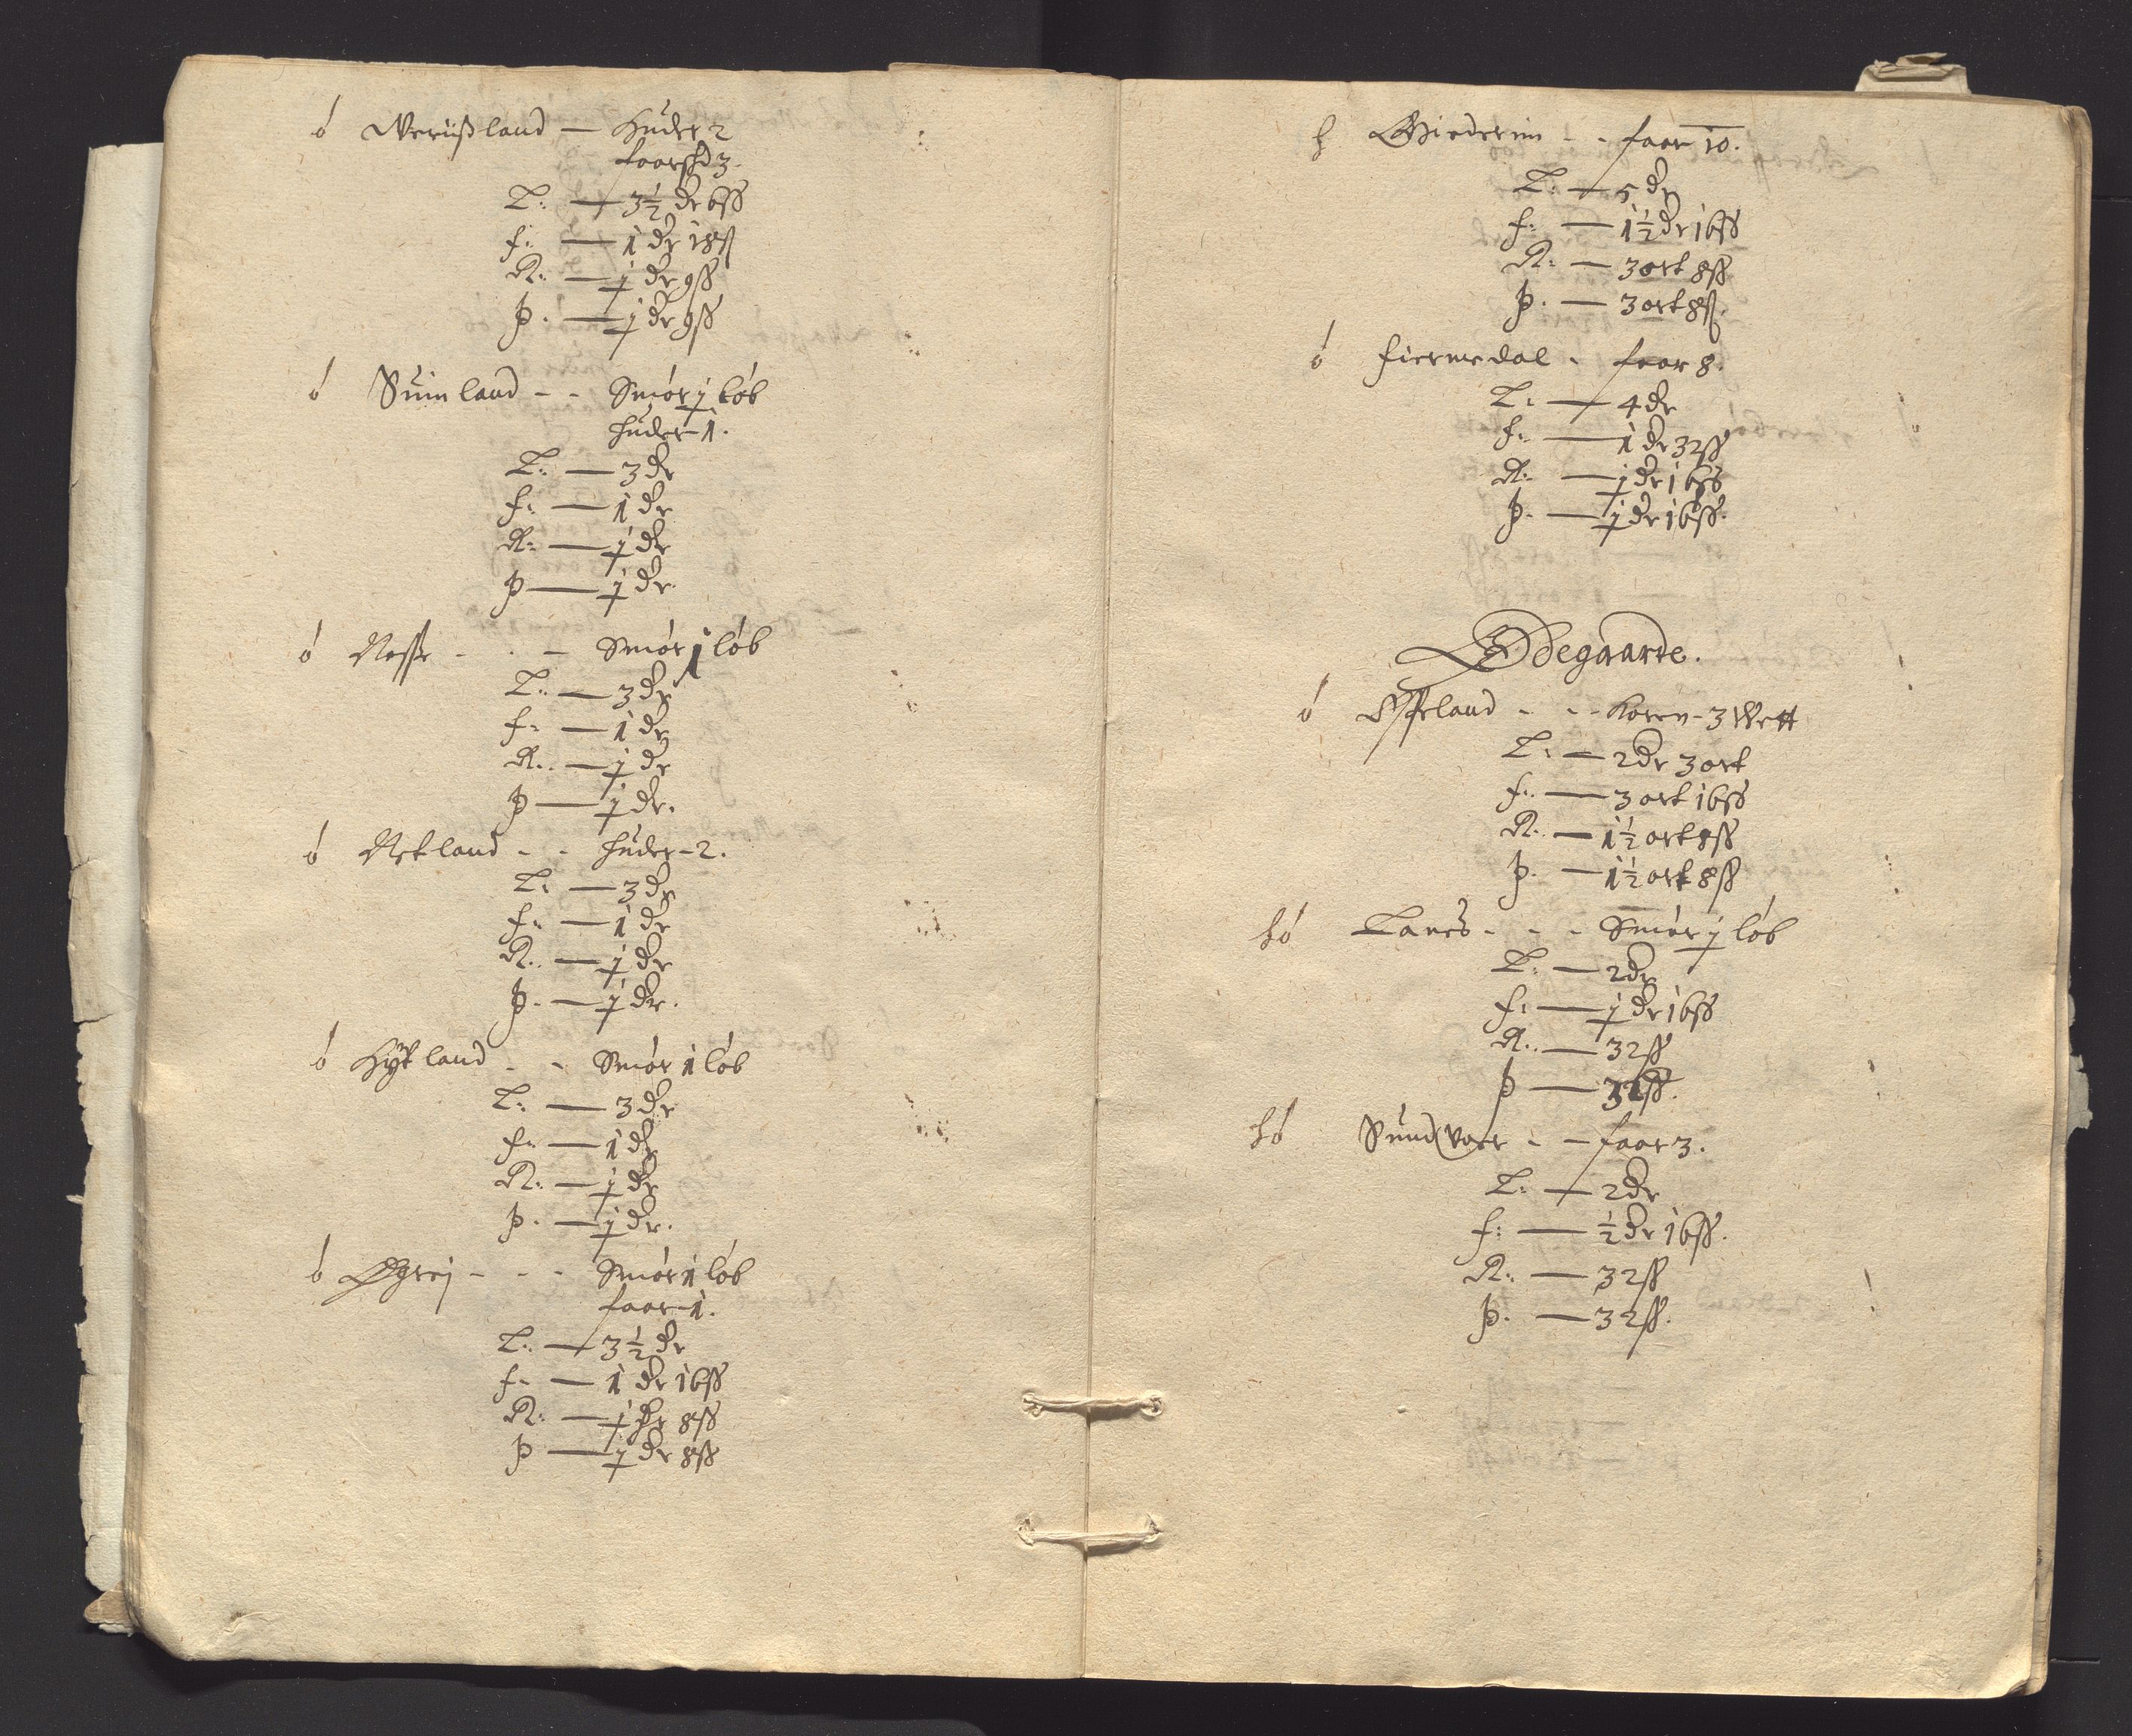 ó Weruißland — Huder 2
faarschd 3.
L: — 3½ dr 6 ß
f: — 1 dr 18 ß
R: — j dr 9 ß
Þ. — j dr 9 ß
ó Suinland - - Smør j løb
huder 1.
L: — 3 dr
f: — 1 dr
R: — j dr
Þ — j dr.
ó Nesse - - - Smør 1 løb
L: — 3 dr
f: — 1 dr
R: — j dr
Þ — j dr.
ó Netland - - huder - 2.
L: — 3 dr
f: — 1 dr
R: — j dr
Þ. — j dr.
ó Høfland - - Smør 1 løb
L: — 3 dr
f: — 1 dr
R: — j dr
Þ. — j dr.
ó Øgrej - - - Smør 1 løb
faar - 1.
L: — 3½ dr
f: — 1 dr 16 ß
R: — j dr 8 ß
Þ — j dr 8 ß
h Giederim - - faar 10.
L: — 5 dr
f: — 1½ dr 16 ß
R: — 3 ort 8 ß
Þ. — 3 ort 8 ß.
ó Fiermedal - faar 8.
L: — 4 dr
f: — 1 dr 32 ß
R: — j dr 16 ß
Þ. — j dr 16 ß.
Ødegaarde.
ó Espeland - - - Koren - 3 Wett
L: — 2 dr 3 ort
f: — 3 ort 16 ß
R: — 1½ ort 8 ß
Þ. — 1½ ort 8 ß
hó Lanes - - - Smør j løb
L: — 2 dr
f: — j dr 16 ß
R: — 32 ß
Þ — 32 ß.
hó Sundvoer - - faar 3.
L: — 2 dr
f: — ½ dr 16 ß.
R: — 32 ß
Þ. — 32 ß.